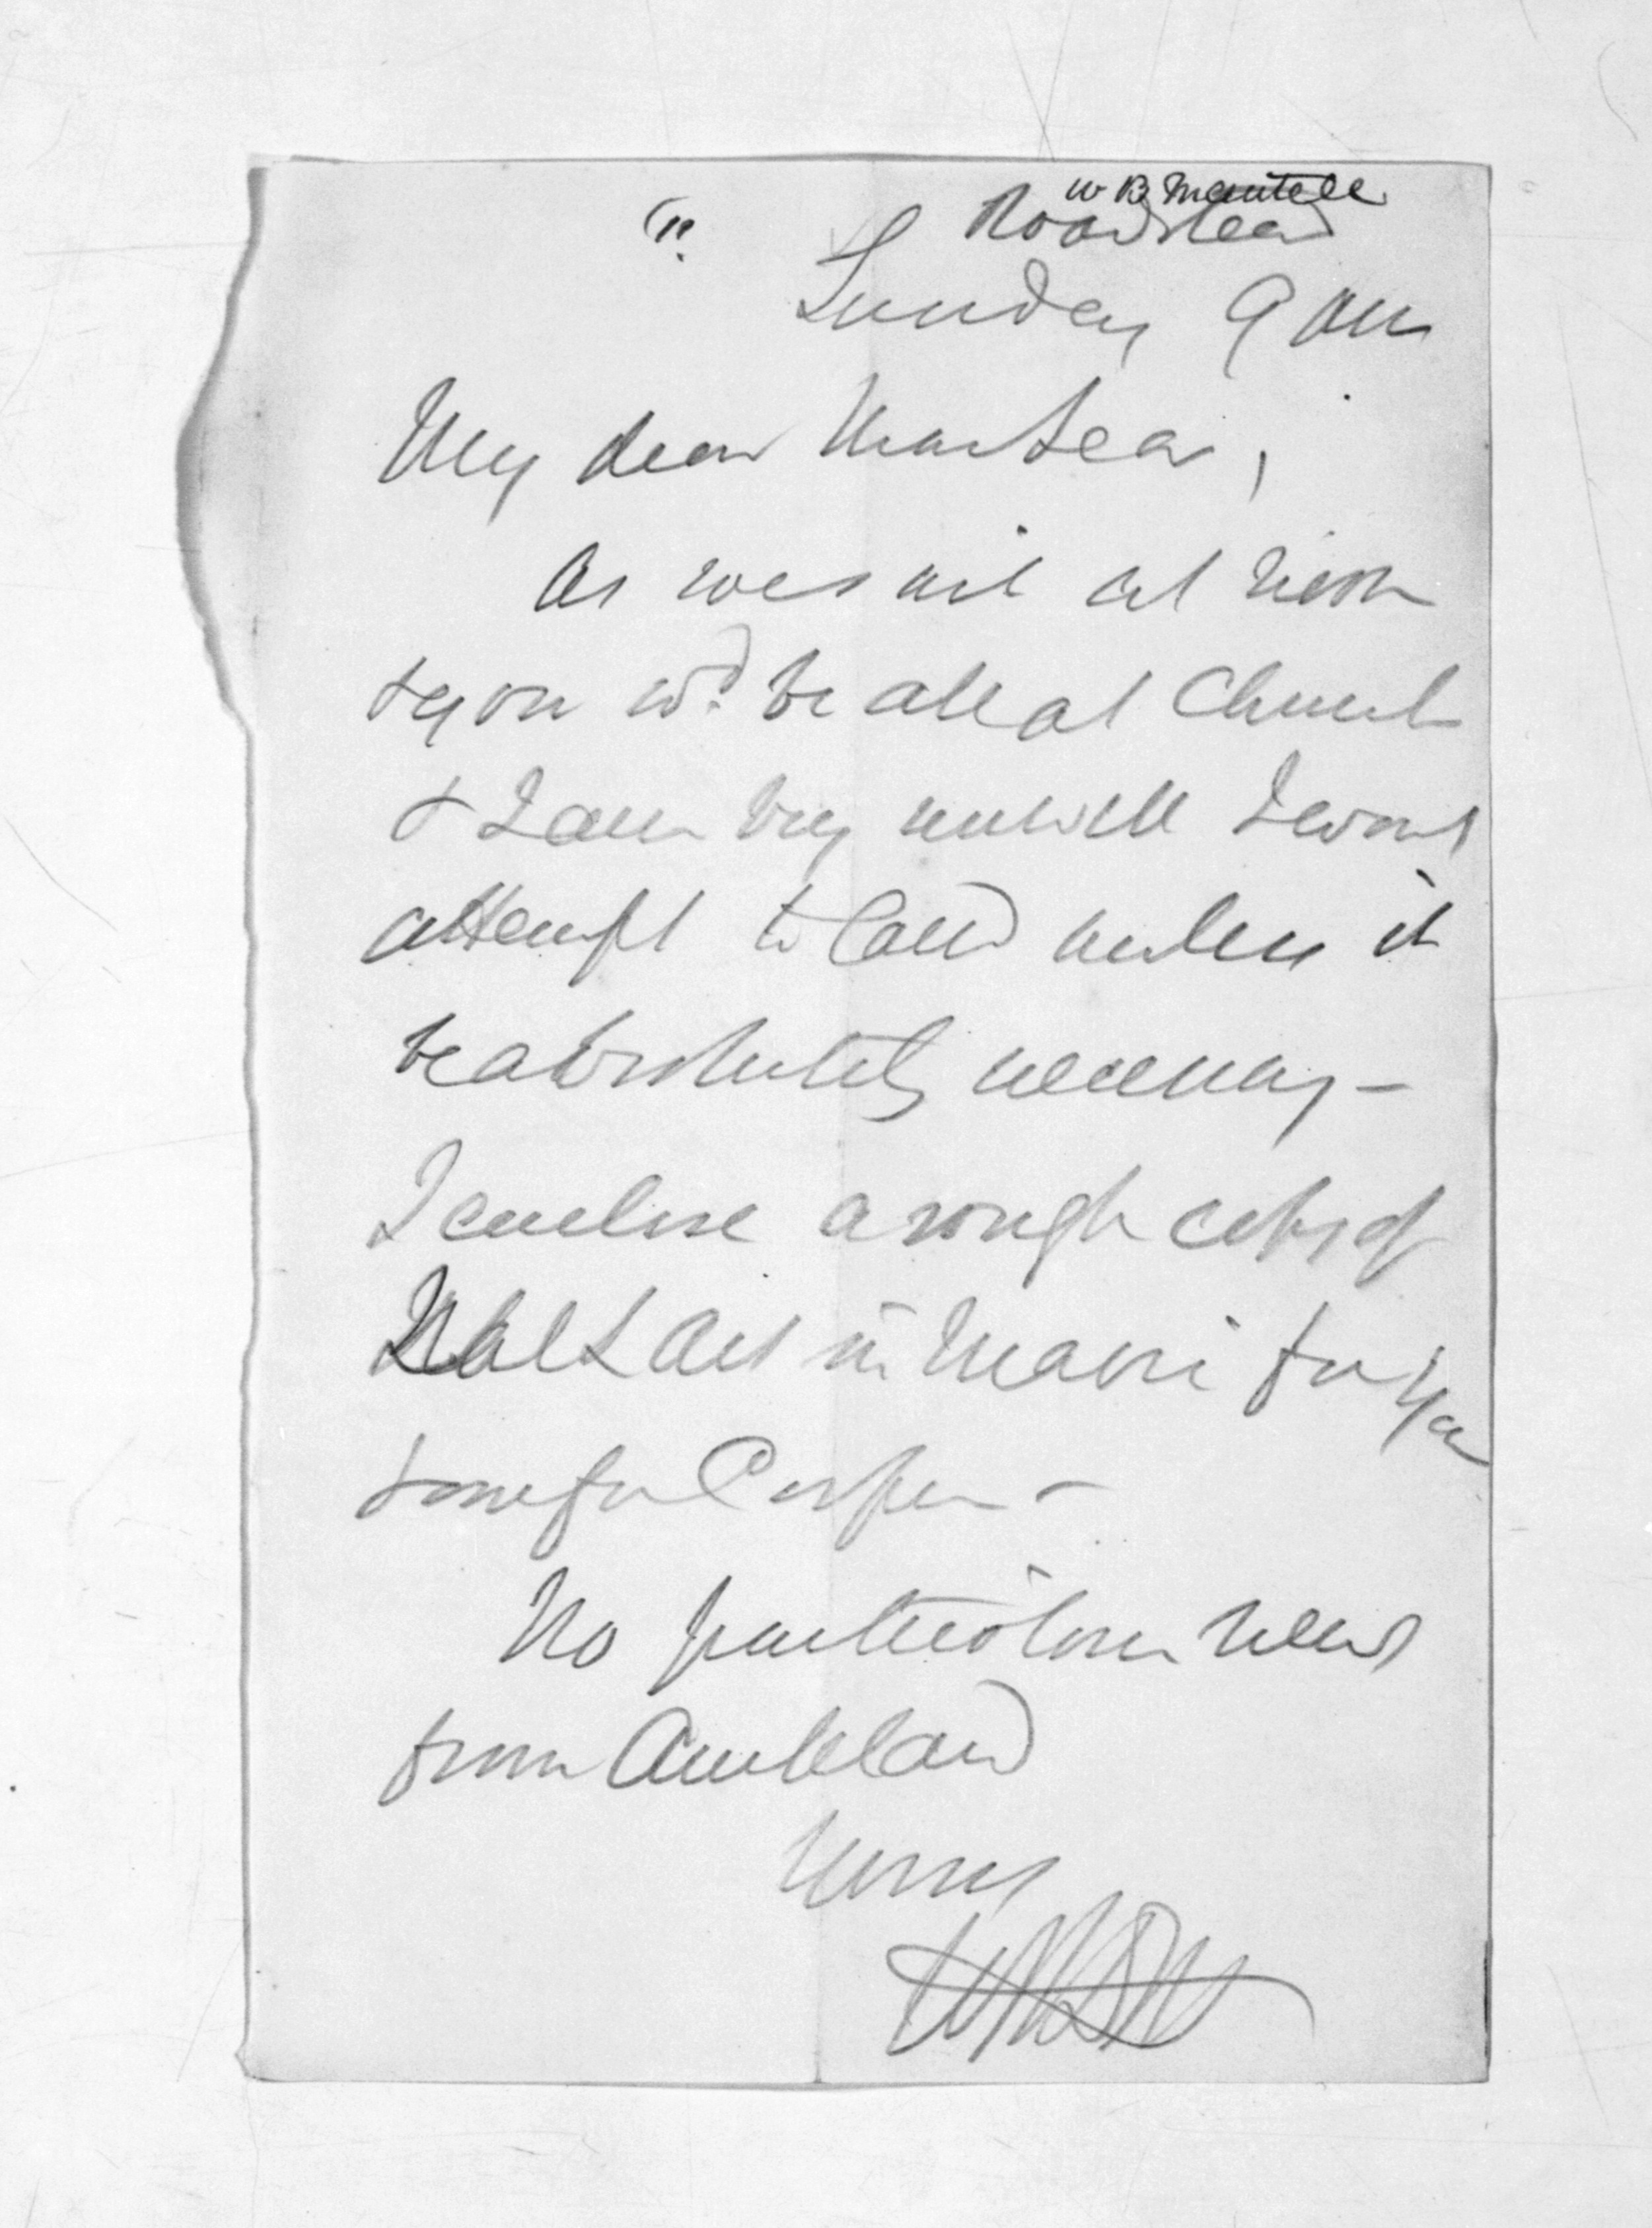 W B Mantell
Roadstead
Sunday 9 am
My dear MacLean,
As we sail at noon
& you wd. be all at Church
& I am very unwell I wont
attempt to land unless it
be absolutely necessary -
I enclose a rough copy of
Act in Maori for you
& one for Cooper -
No particular news
from Auckland
Yours
WBDM